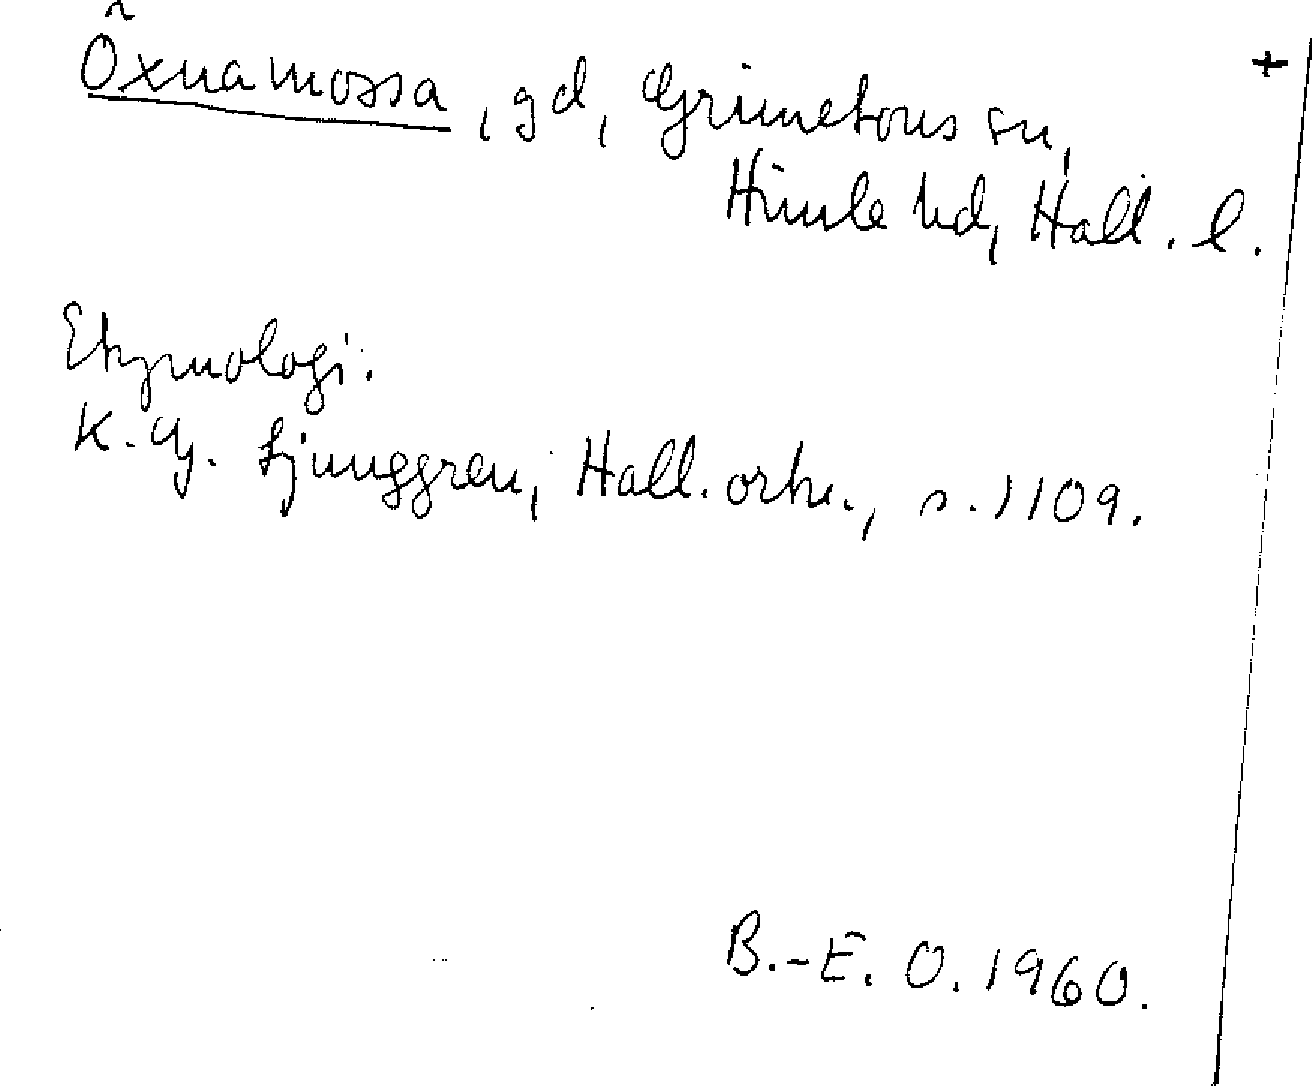 Öxnamossa, gd, Grimetons sn, +
Himle hd, Hall. l.
Etymologi.
K. G. Ljunggren, Hall. ortn., s. 1109.
B.-E. O. 1960.